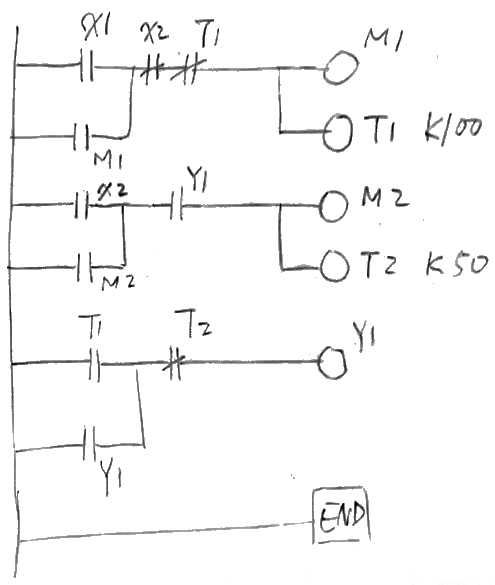 X1 X2 T1 M1
M1 T1 K100
X2 Y1 M2
M2 T2 K50
T1 T2 Y1
Y1
END